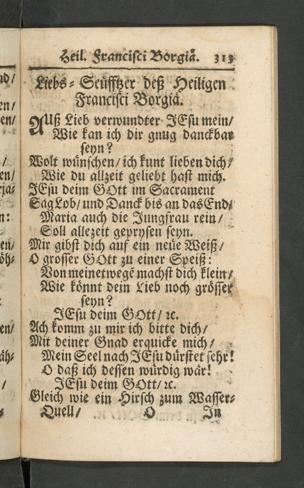 Heil. Francisci Borgiã. 313
Liebs-Seüfftzer deß Heiligen
Francisci Borgiã.
Auß Lieb verwundter JEsu mein/
Wie kan ich dir gnug danckbar
seyn?
Wolt wünschen/ ich kunt lieben dich/
Wie du allzeit geliebt hast mich.
JEsu deim GOtt im Sacrament
Sag Lob/ und Danck bis an das End/
Maria auch die Jungfrau rein/
Soll allezeit geprysen seyn.
Mir gibst dich auf ein neüe Weiß/
O grosser GOtt zu einer Speiß:
Von meinetwegẽ machst dich klein/
Wie könnt dein Lieb noch grösser
seyn?
JEsu deim GOtt/ ꝛc.
Ach komm zu mir ich bitte dich/
Mit deiner Gnad erquicke mich/
Mein Seel nach JEsu dürstet sehr!
O daß ich dessen würdig wär!
JEsu deim GOtt/ ꝛc.
Gleich wie ein Hirsch zum Wasser-
Quell/ O In